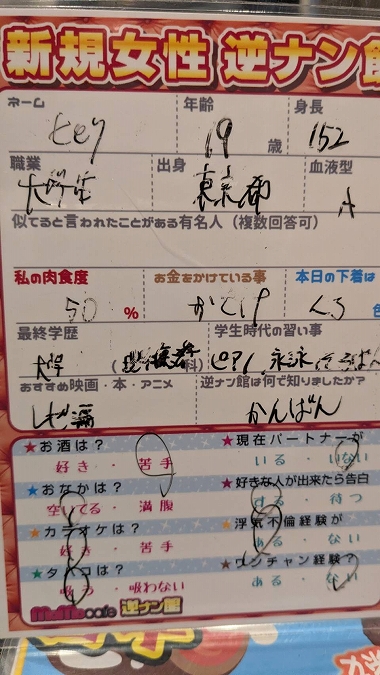 新規女性 逆ナン館
ネーム 年齢 身長
key 19 歳 152
職業 出身 血液型
大学生 東京都 A
似てると言われたことがある有名人（複数回答可）
私の肉食度 お金をかけている事 本日の下着は
50 % くろ 色
最終学歴 学生時代の習い事
大学 ( 科) ピアノ 水泳
おすすめ映画・本・アニメ 逆ナン館は何で知りましたか？
かんばん
★お酒は？ ★現在パートナーが
好き・苦手 いる・いない
★おなかは？ ★好きな人が出来たら告白
空いてる・満腹 する・待つ
★カラオケは？ ★浮気不倫経験が
好き・苦手 ある・ない
★タバコは？ ★ワンチャン経験？
吸う・吸わない ある・ない
MoMo cafe 逆ナン館